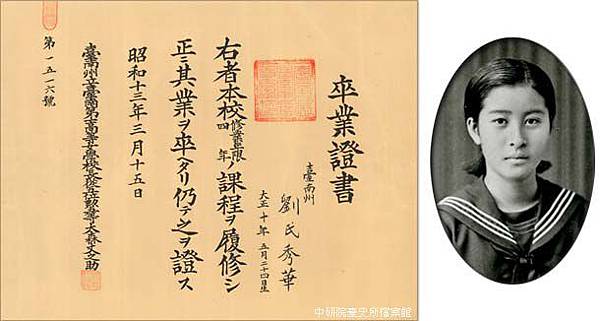 卒業證書
臺南州
劉氏秀華
大正十年五月二十四日生
右者本校修業年限四年ノ課程ヲ履修シ
正ニ其業ヲ卒ヘタリ仍テ之ヲ證ス
昭和十三年三月十五日
臺南州立臺南第二高等女學校長
第一五一六號
中研院臺史所檔案館